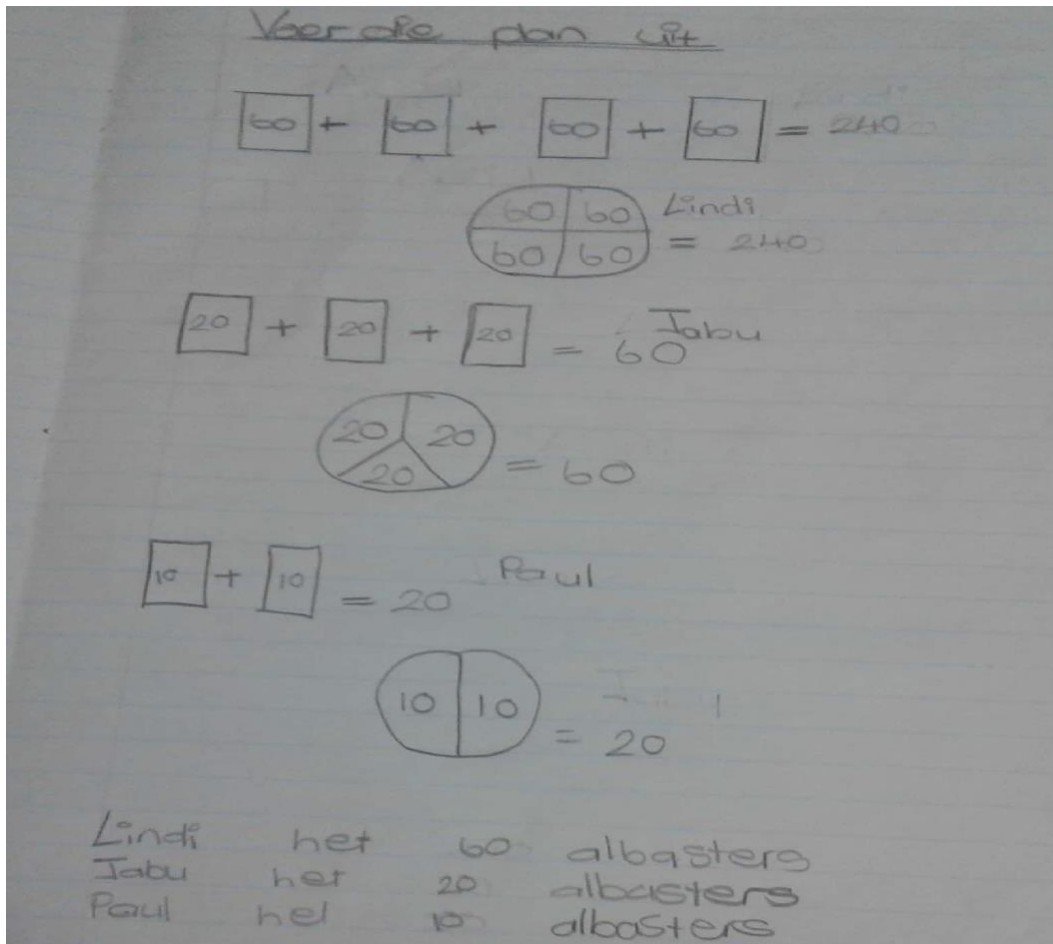 Voer die plan uit
60 + 60 + 60 + 60 = 240
60 60 Lindi
60 60 = 240
20 + 20 + 20 = 60 Jabu
20 20
20 = 60
10 + 10 = 20 Paul
10 10 = 20
Lindi het 60 albasters
Jabu het 20 albasters
Paul het 10 albasters